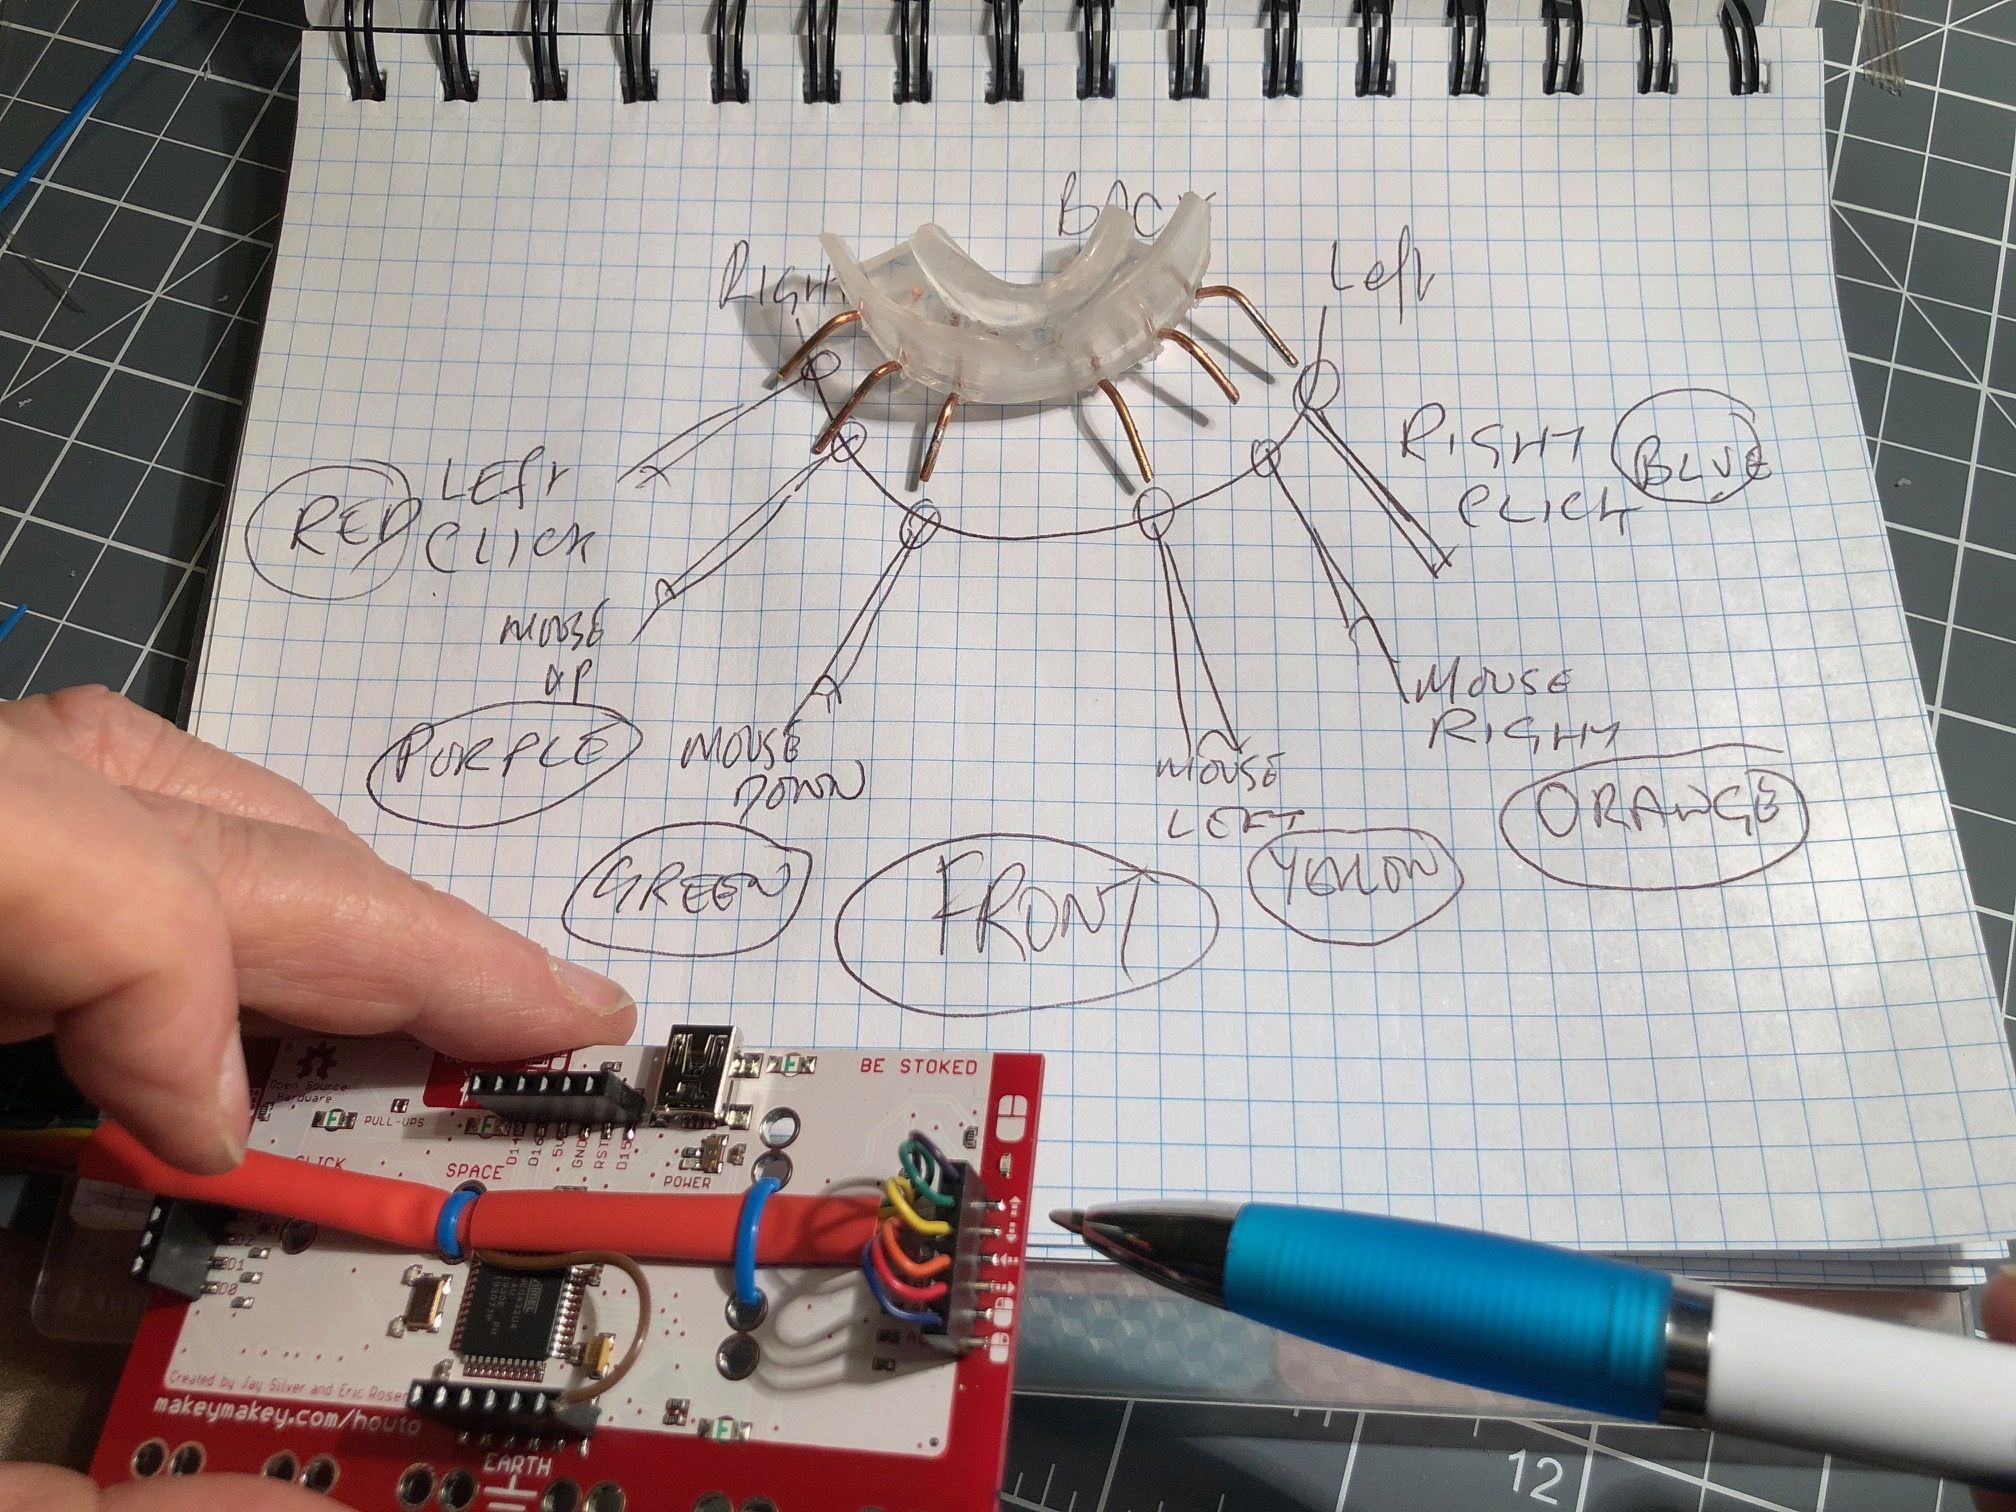 BACK
RIGHT
Left
RIGHT
CLICK
BLUE
LEFT
CLICK
RED
MOUSE
UP
PURPLE
MOUSE
DOWN
GREEN
MOUSE
LEFT
YELLOW
MOUSE
RIGHT
ORANGE
FRONT
BE STOKED
Open Source
Hardware
PULL-UPS
CLICK
SPACE
D14
D16
5V
GND
RST
D15
POWER
D2
D1
D0
Created by Jay Silver and Eric Rosen
makeymakey.com/howto
EARTH
12